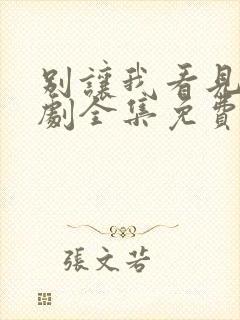 別讓我看見
劇全集免費
張文若